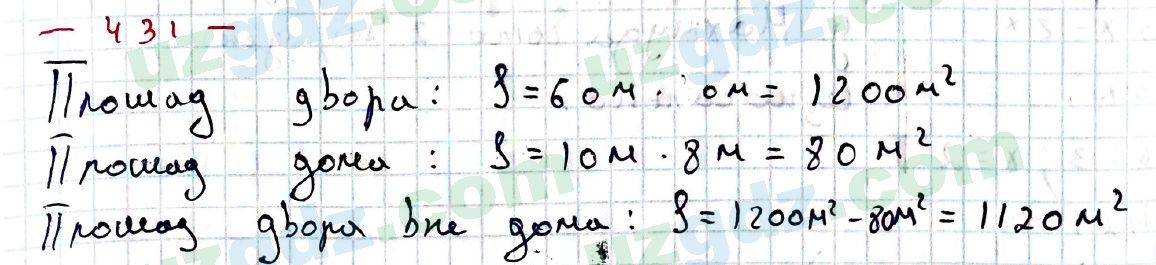 - 431 -
Площад двора: S = 60м · 0м = 1200м²
Площад дома: S = 10м · 8м = 80м²
Площад двора вне дома: S = 1200м² - 80м² = 1120м²
uzgdz.com